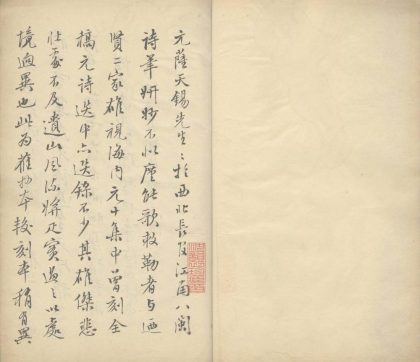 元薩天錫先生生於西北長及江南八閩
詩筆妍妙不似塵能歌敕勒者与迺
賢二家雄視海内元十集中曾刻全
稿元詩選中亦選錄不少其雄傑悲
壯處不及遺山風流婉冶實過之以處
境迥異也此為舊抄本較刻本稍有異